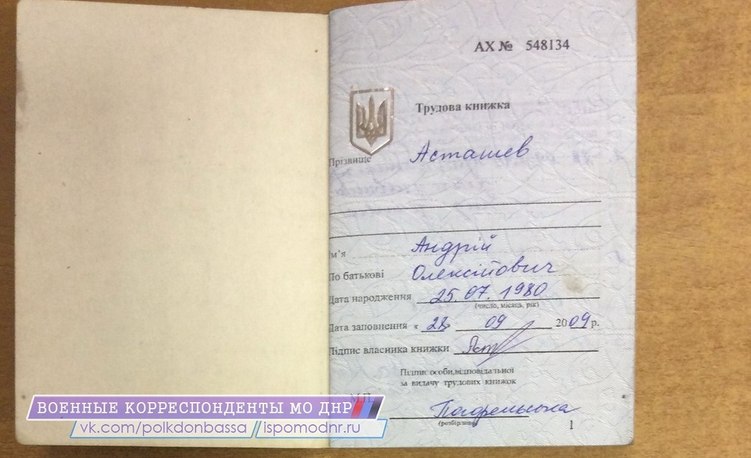 АХ № 548134
Трудова книжка
Прізвище Асташев
Ім'я Андрій
По батькові Олексійович
Дата народження 25.07.1980
(число, місяць, рік)
Дата заповнення « 28 09 2009 р.
Підпис власника книжки
Підпис особи, відповідальної
за видачу трудових книжок
(розбірливо)
1
ВОЕННЫЕ КОРРЕСПОНДЕНТЫ МО ДНР
vk.com/polkdonbassa // ispomodnr.ru